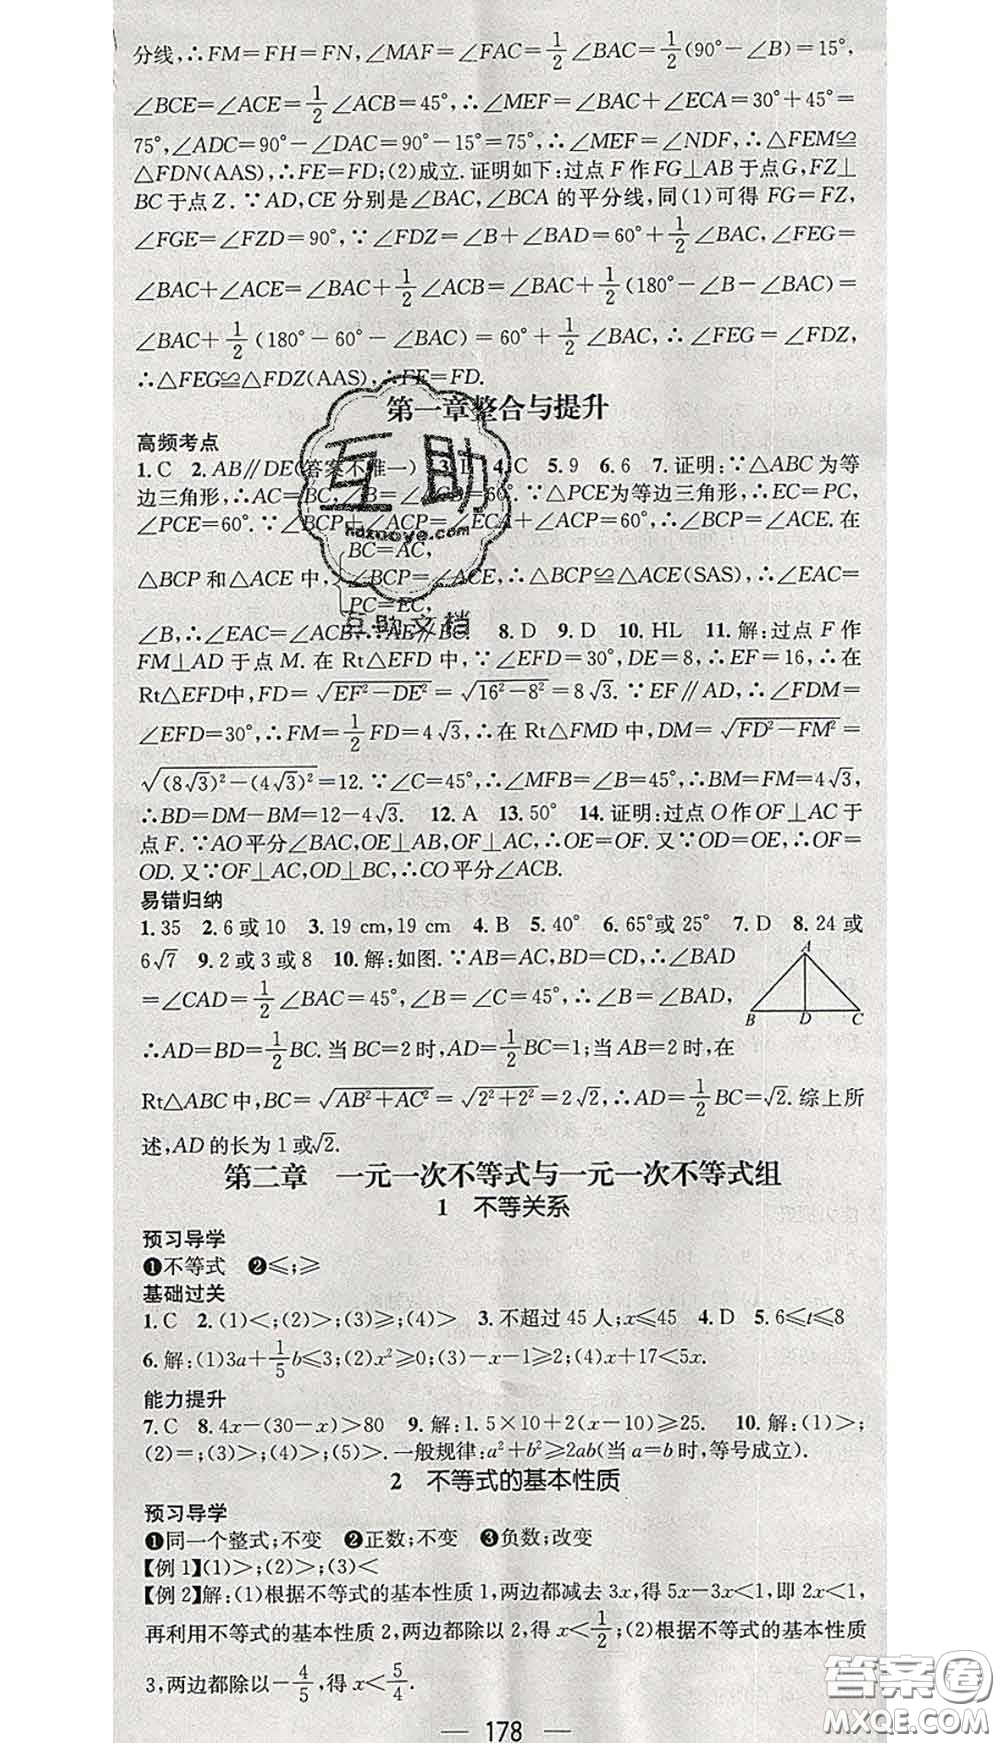 分线,∴FM=FH=FN,∠MAF=∠FAC=1/2∠BAC=1/2(90°-∠B)=15°,
∠BCE=∠ACE=1/2∠ACB=45°,∴∠MEF=∠BAC+∠ECA=30°+45°=
75°,∠ADC=90°-∠DAC=90°-15°=75°,∴∠MEF=∠NDF,∴△FEM≌
△FDN(AAS),∴FE=FD;(2)成立.证明如下:过点F作FG⊥AB于点G,FZ⊥
BC于点Z.∵AD,CE分别是∠BAC,∠BCA的平分线,同(1)可得FG=FZ,
∠FGE=∠FZD=90°,∵∠FDZ=∠B+∠BAD=60°+1/2∠BAC,∠FEG=
∠BAC+∠ACE=∠BAC+1/2∠ACB=∠BAC+1/2(180°-∠B-∠BAC)=
∠BAC+1/2(180°-60°-∠BAC)=60°+1/2∠BAC,∴∠FEG=∠FDZ,
∴△FEG≌△FDZ(AAS),∴FE=FD.
第一章整合与提升
高频考点
1.C 2.AB∥DE(答案不唯一) 3. 4.C 5.9 6.6 7.证明:∵△ABC为等
边三角形,∴AC=BC,∠B=∠ACB=60°.∵△PCE为等边三角形,∴EC=PC,
∠PCE=60°.∵∠BCP+∠ACP=∠ECA+∠ACP=60°,∴∠BCP=∠ACE.在
BC=AC,
△BCP和△ACE中,∠BCP=∠ACE,∴△BCP≌△ACE(SAS),∴∠EAC=
PC=EC,
∠B,∴∠EAC=∠ACB,∴AE∥BC. 8.D 9.D 10.HL 11.解:过点F作
FM⊥AD于点M.在Rt△EFD中,∵∠EFD=30°,DE=8,∴EF=16,∴在
Rt△EFD中,FD=√(EF²-DE²)=√(16²-8²)=8√3.∵EF∥AD,∴∠FDM=
∠EFD=30°,∴FM=1/2FD=4√3,∴在Rt△FMD中,DM=√(FD²-FM²)=
√((8√3)²-(4√3)²)=12.∵∠C=45°,∴∠MFB=∠B=45°,∴BM=FM=4√3,
∴BD=DM-BM=12-4√3. 12.A 13.50° 14.证明:过点O作OF⊥AC于
点F.∵AO平分∠BAC,OE⊥AB,OF⊥AC,∴OE=OF.又∵OD=OE,∴OF=
OD.又∵OF⊥AC,OD⊥BC,∴CO平分∠ACB.
易错归纳
1.35 2.6或10 3.19 cm,19 cm 4.B 5.40° 6.65°或25° 7.D 8.24或
6√7 9.2或3或8 10.解:如图.∵AB=AC,BD=CD,∴∠BAD
=∠CAD=1/2∠BAC=45°,∠B=∠C=45°,∴∠B=∠BAD,
∴AD=BD=1/2BC.当BC=2时,AD=1/2BC=1;当AB=2时,在
A
B D C
Rt△ABC中,BC=√(AB²+AC²)=√(2²+2²)=2√2,∴AD=1/2BC=√2.综上所
述,AD的长为1或√2.
第二章 一元一次不等式与一元一次不等式组
1 不等关系
预习导学
❶不等式 ❷≤;≥
基础过关
1.C 2.(1)<;(2)>;(3)≥;(4)> 3.不超过45人;x≤45 4.D 5.6≤t≤8
6.解:(1)3a+1/5b≤3;(2)x²≥0;(3)-x-1≥2;(4)x+17<5x.
能力提升
7.C 8.4x-(30-x)>80 9.解:1.5×10+2(x-10)≥25. 10.解:(1)>;
(2)=;(3)>;(4)>;(5)>.一般规律:a²+b²≥2ab(当a=b时,等号成立).
2 不等式的基本性质
预习导学
❶同一个整式;不变 ❷正数;不变 ❸负数;改变
【例1】(1)>;(2)>;(3)<
【例2】解:(1)根据不等式的基本性质1,两边都减去3x,得5x-3x<1,即2x<1,
再利用不等式的基本性质2,两边都除以2,得x<1/2;(2)根据不等式的基本性质
3,两边都除以-4/5,得x<5/4.
— 178 —
互助
hazuoye.com
互助文档
答案圈
MXQE.COM